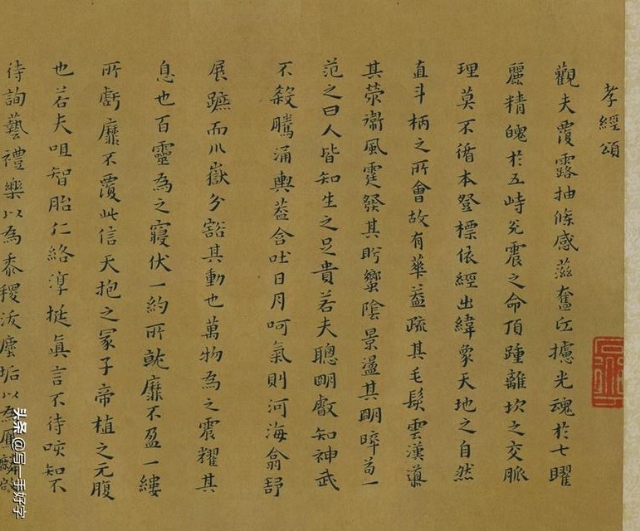 孝經頌
觀夫覆露抽條感滋奮茁攄光魂於七曜
麗精魄於五峙兊震之命頂踵離坎之交脈
理莫不循本登標依經出緯象天地之自然
直斗柄之所會故有華葢疏其毛髮雲漢導
其滎衛風霆發其盻蠁陰景盪其明晬苟一
范之曰人皆知生之足貴若夫聰明叡知神武
不殺騰涌輿葢含吐日月呵氣則河海翕舒
展蹠而川嶽分豁其動也萬物為之震耀其
息也百靈為之寢伏一約所就靡不盈一縷
所虧靡不覆此信天抱之冢子帝植之元腹
也若夫咀智胎仁絡淳挻眞言不待咳知不
待詢藝禮樂以為黍稷浣塵垢以為
头条@写一手好字